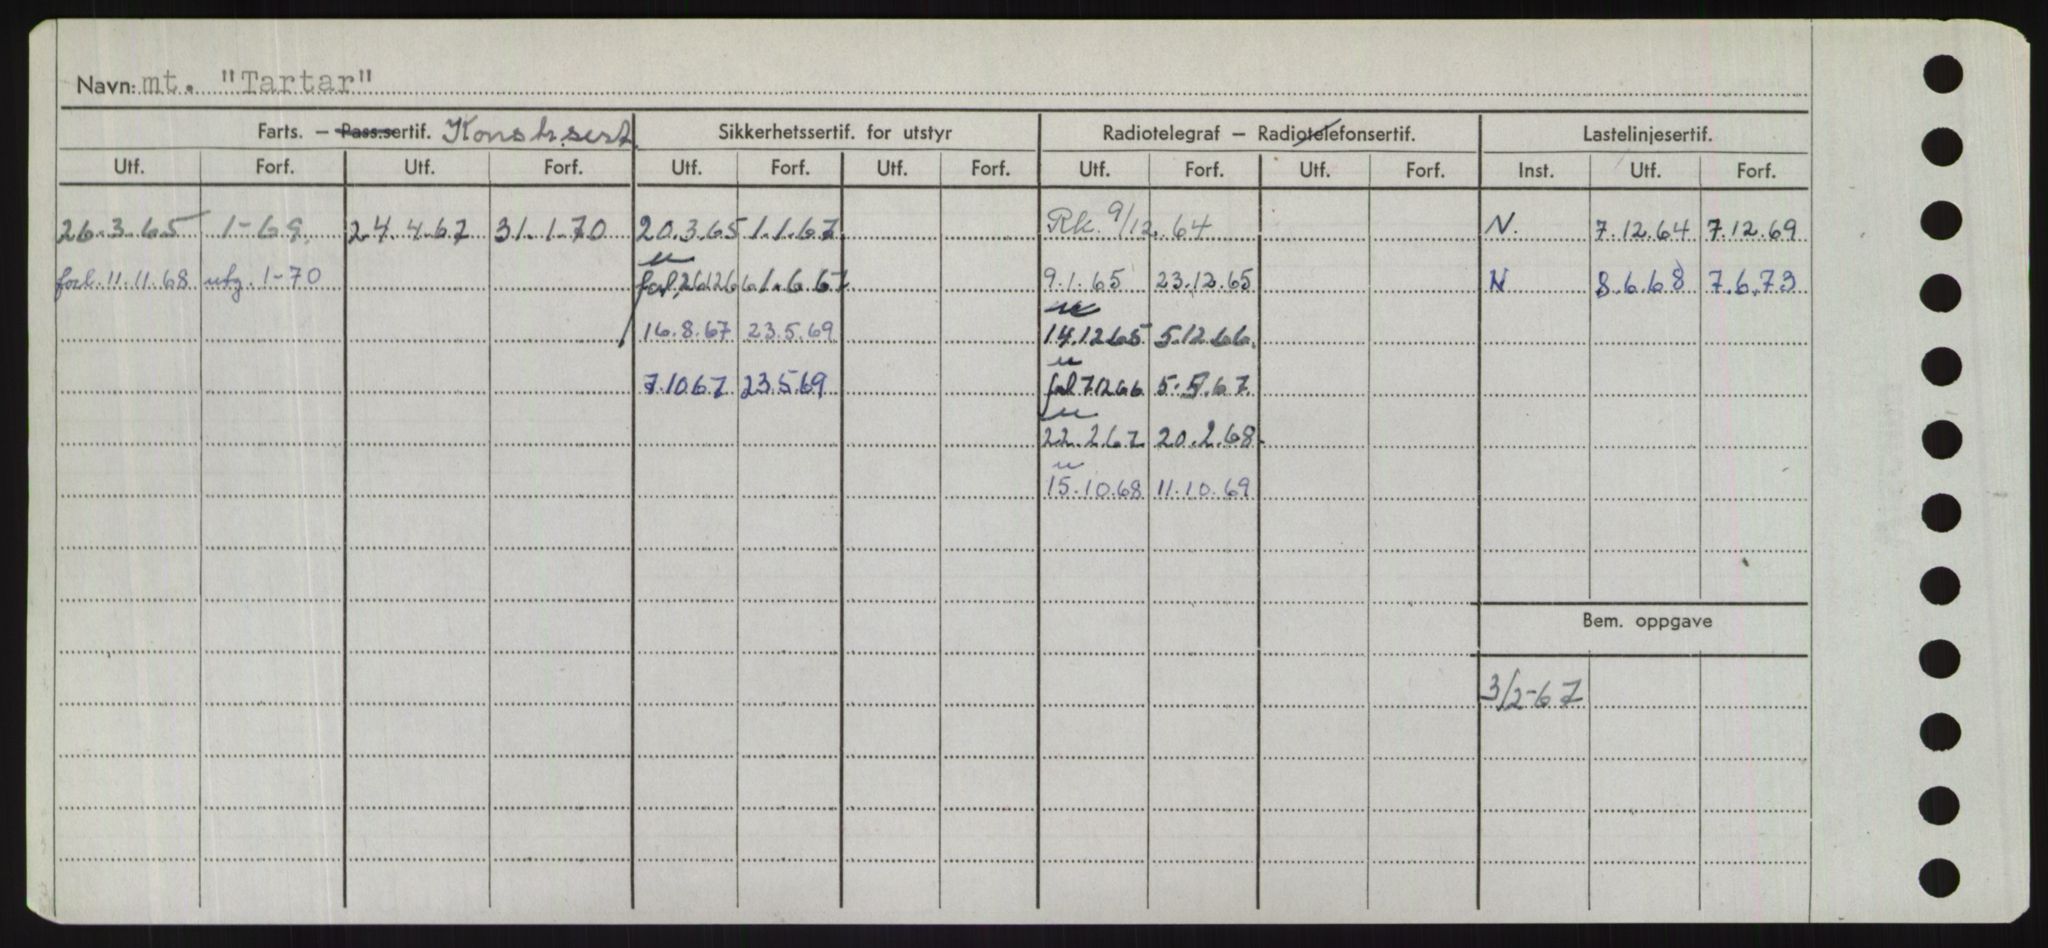 Navn: mt. "Tartar"
Farts. – Pass.sertif. Konstr.sert. Sikkerhetssertif. for utstyr Radiotelegraf – Radiotelefonsertif. Lastelinjesertif.
Utf. Forf. Utf. Forf. Utf. Forf. Utf. Forf. Utf. Forf. Utf. Forf. Inst. Utf. Forf.
26.3.65 1-69. 24.4.67 31.1.70 20.3.65 1.1.67 Rk. 9/12.64 N. 7.12.64 7.12.69
forl. 11.11.68 utg. 1-70 forl. 1.6.67 9.1.65 23.12.65 N 8.6.68 7.6.73
16.8.67 23.5.69 14.12.65 5.12.66.
7.10.67 23.5.69 forl 7.12.66 5.5.67.
22.2.67 20.2.68.
15.10.68 11.10.69
Bem. oppgave
3/2-67